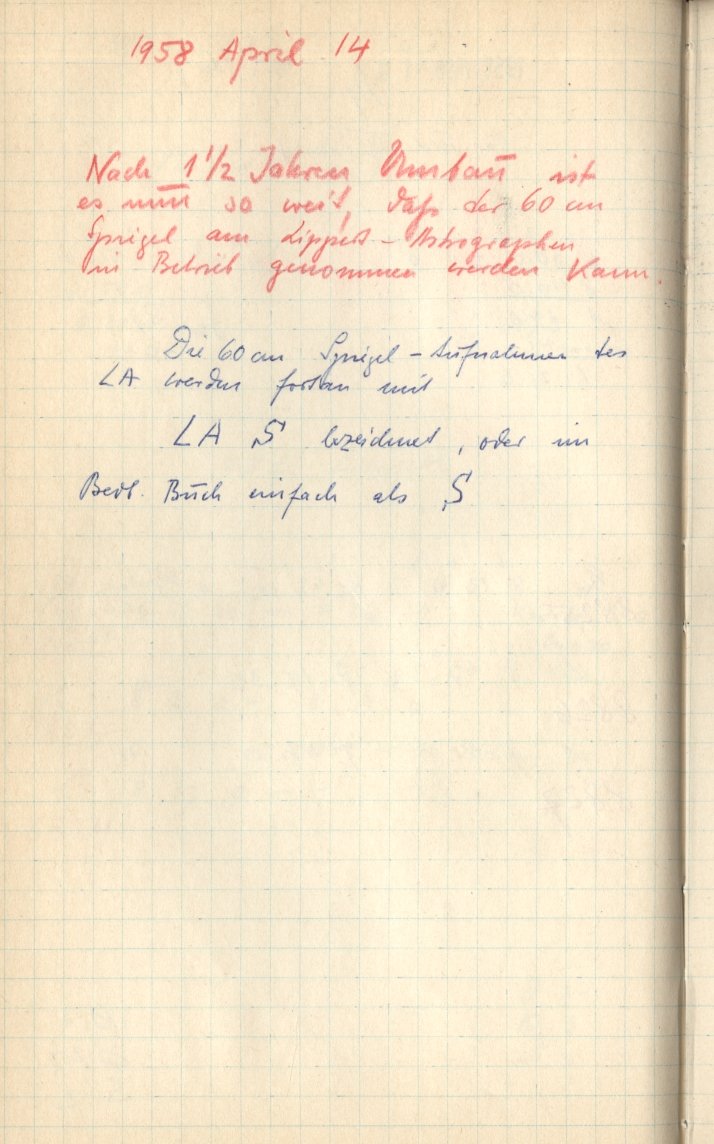 1958 April 14
Nach 1 1/2 Jahren Umbau ist
es nun so weit, daß der 60 cm
Spiegel am Lippert-Astrographen
in Betrieb genommen werden kann.
Die 60 cm Spiegel-Aufnahmen des
LA werden fortan mit
LA S bezeichnet, oder im
Beob. Buch einfach als S